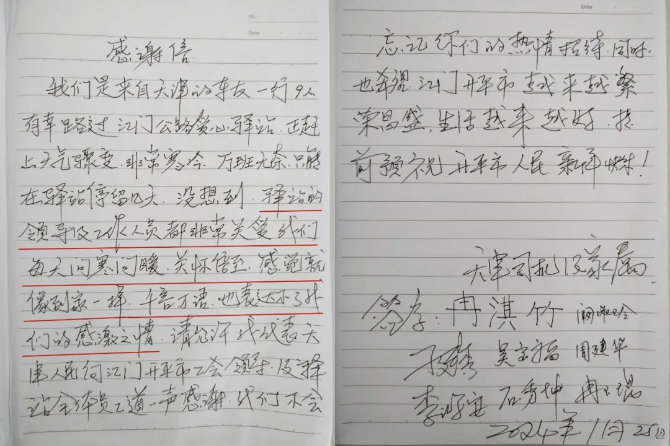 感谢信
我们是来自天津的车友一行9人
有幸路过江门公路爱心驿站,正赶
上天气骤变,非常寒冷,万班无奈,只能
在驿站停留几天,没想到,驿站的
领导及工作人员都非常关爱我们
每天问寒问暖,关怀倍至,感觉就
像到家一样,千言万语,也表达不了我
们的感激之情,请允许我代表天
津人民向江门开平市工会领导及驿
站全体员工道一声感谢,我们不会
忘记你们的热情招待,同时
也希望江门开平市越来越繁
荣昌盛,生活越来越好,提
前预祝开平市人民新年快乐!
天津司机及家属
签字:冉淇竹
吴宝福 周建华
石秀坤
2024年1月25日